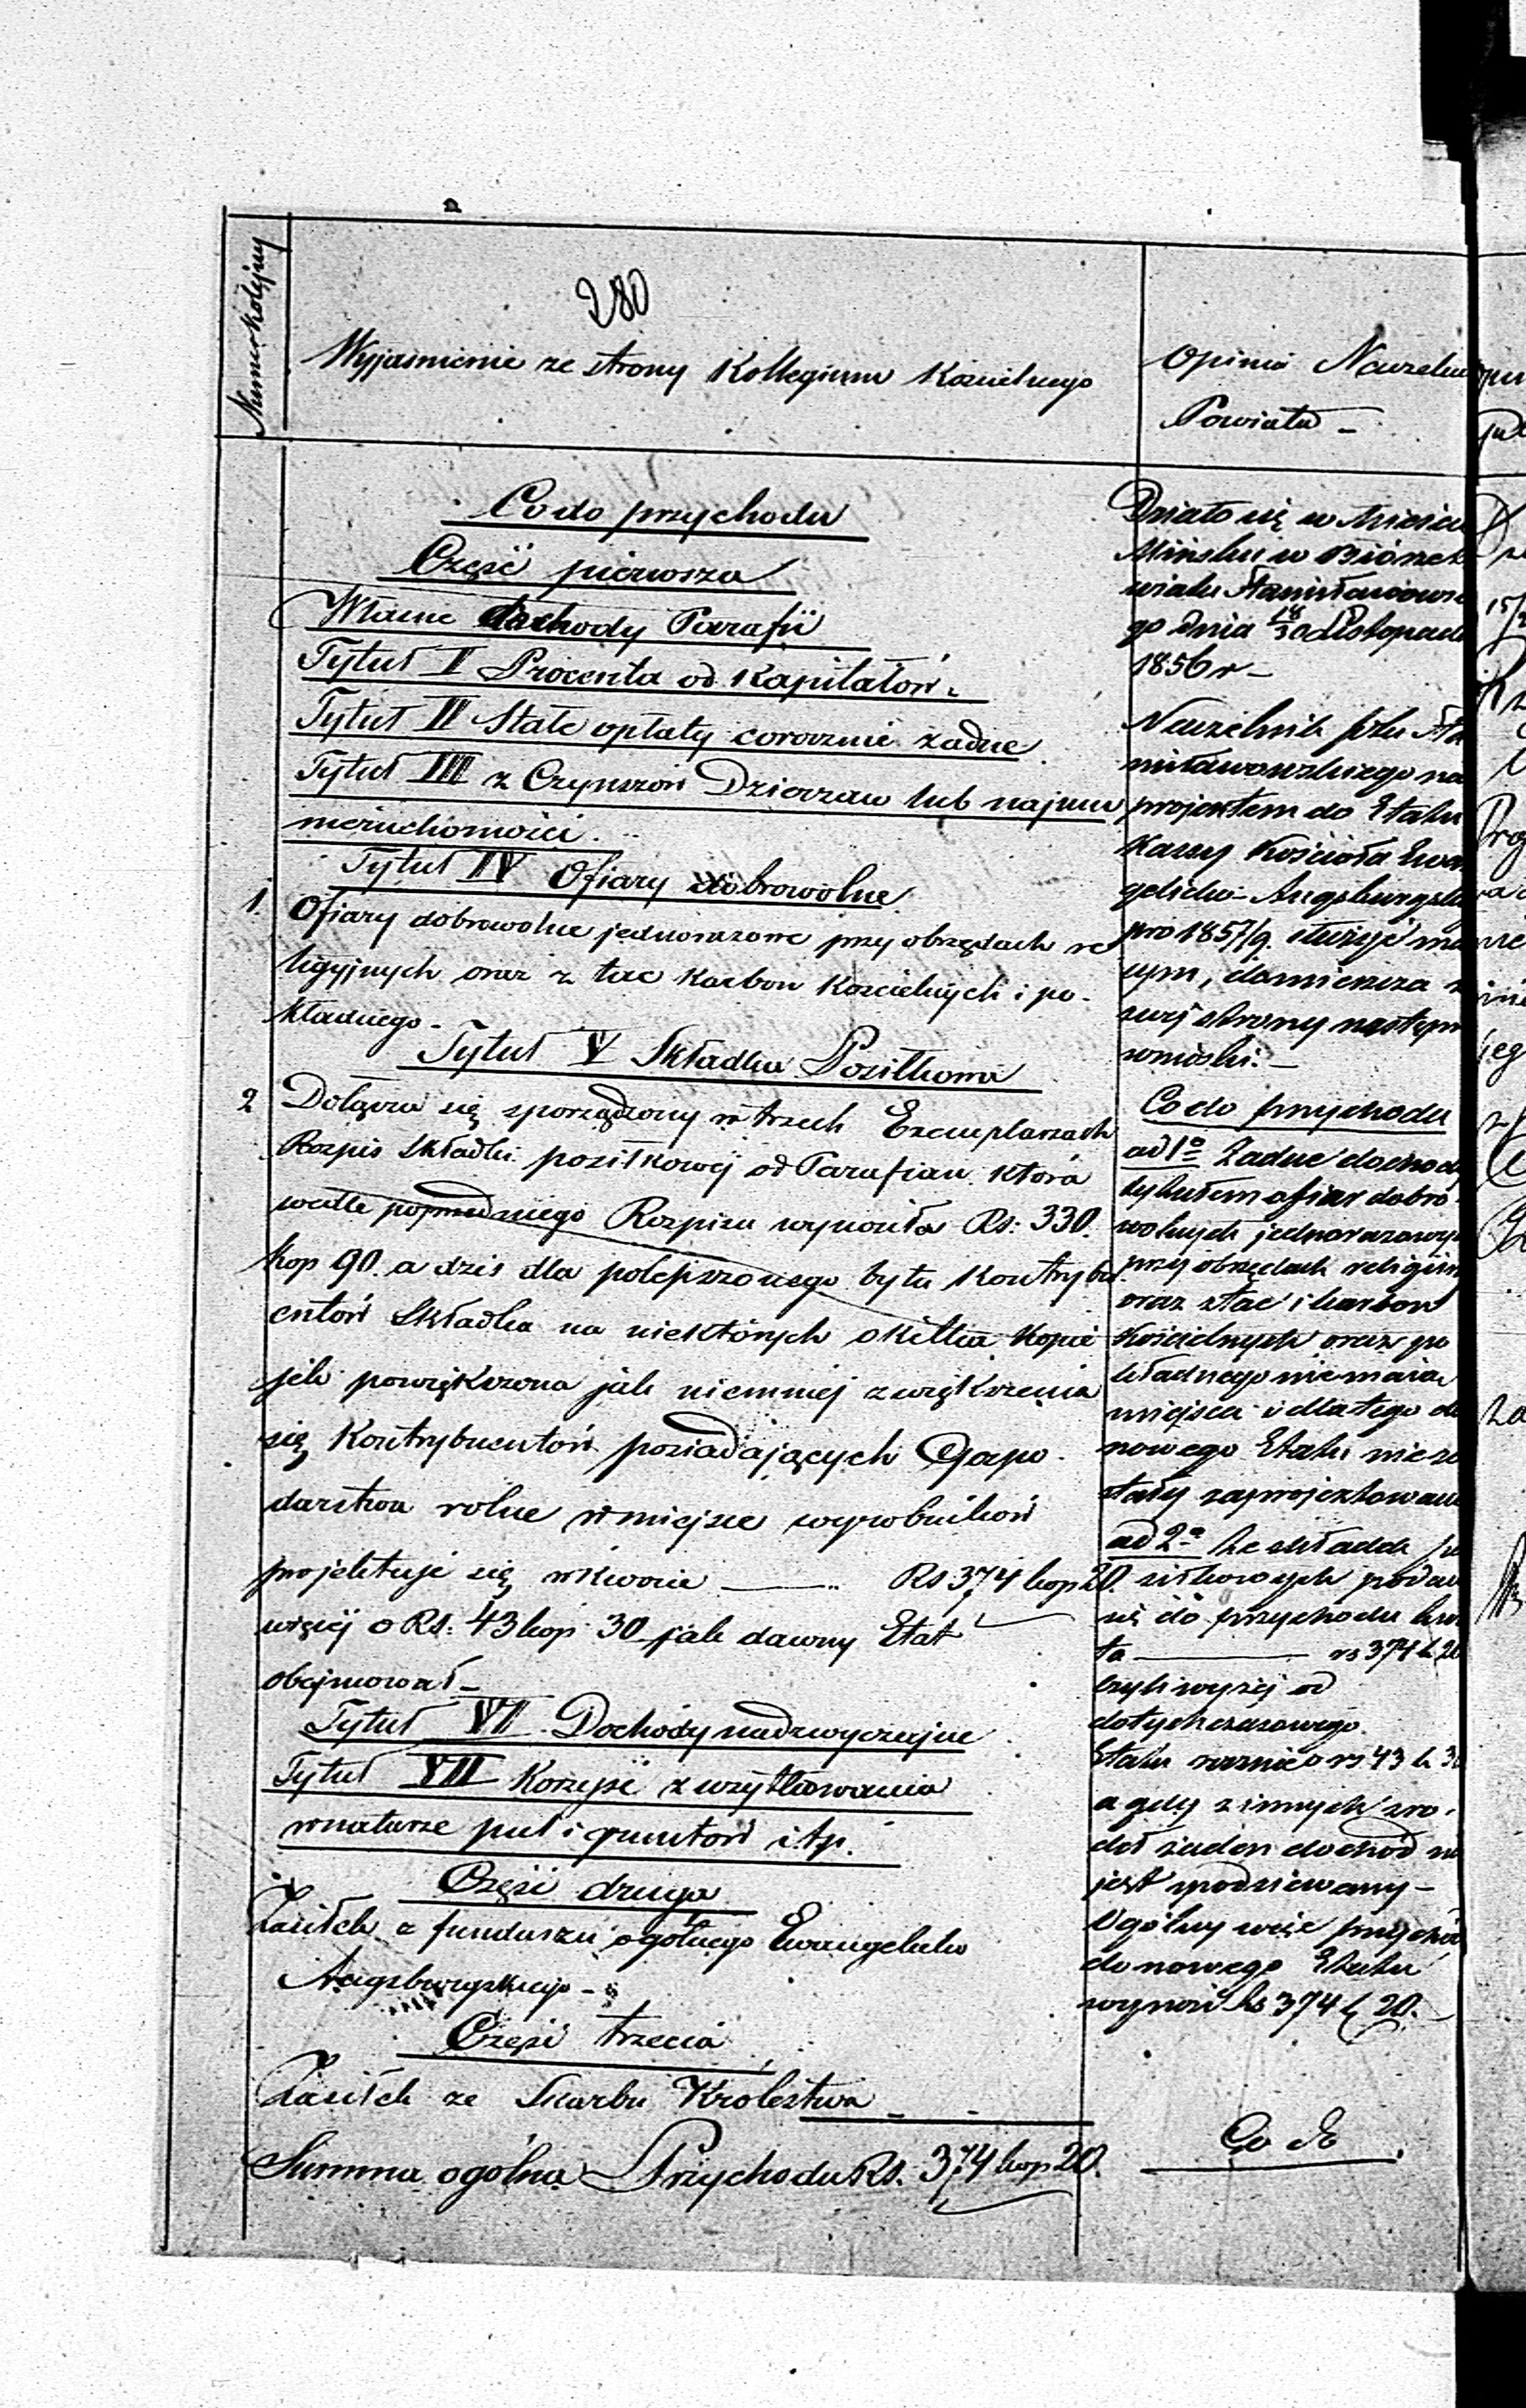 280
Numer kolejny
Wyjasnienie ze strony Kollegium Koscielnego
Co do przychodu
Część pierwsza
Własne dochody Parafii
Tytuł I Procenta od Kapitałów.
Tytuł II Stałe opłaty corocznie żadne
Tytuł III z Czynszów Dzierzaw lub najmu
nieruchomości.
Tytuł IV Ofiary dobrowolne
1. Ofiary dobrowolne jednorazowe przy obrzędach re
ligyjnych oraz z tac Karbon Koscielnych i po-
kładnego -
Tytuł V Składka Posiłkowa
2 Dołącza się sporządzony w trzech Exemplarzach
Rozpis Składki posiłkowéj od Parafian która
wedle poprzedniego Rozpisu wynosiła Rs: 330.
kop 90. a dzis dla polepszonego bytu Kontrybu
entów Składka na niektórych o kilka Kopie
jek powiększona jak niemniej zwiększenia
się Kontrybuentów posiadających Gospo-
darstwa rolne w miejsce wyrobników
projektuje się w kwocie — Rs 374 kop 20.
więcéj o Rs: 43 kop 30 jak dawny Etat
obejmował -
Tytuł VI. Dochody nadzwyczajne
Tytuł VII Korzyści z użytkowania
w naturze pul i gruntów i.t.p.
Część druga
Zasiłek z funduszu ogólnego Ewangelicko
Augsburgskiego -
Część trzecia
Zasiłek ze Skarbu Krolestwa -
Summa ogólna Przychodu Rs. 374 kop 20.
Opinia Naczelni
Powiatu -
Działo się w Miescie
Mińsku w Biórze
wiatu Stanisławows
go Dnia 18/30 Listopada
1856 r -
Naczelnik ptu Sta
nisławowskiego na
projektem do Etatu
Kassy Kościoła Ewan
gelicko-Augsburgsk
pro 1857/9.
cym, zamieszcza
swéj strony następu
wnioski. -
Co do przychodu
ad 1o Żadne dochod
tytułem ofiar dobro
wolnych jednorazowy
przy obrzędach religijn
oraz z tac i karbon
Kościelnych oraz po
kładnego nie maia
miejsca i dlatego do
nowego Etatu nie zo
stały zaprojektowane
ad 2o Ze składek po
siłkowych podaw
się do przychodu kwo
ta — rs 374 k 20
czyli wyżéj od
dotychczasowego
Etatu rocznie o rs 43 k 30
a gdy z innych zro-
deł żaden dochód ni
jest spodziewany -
Ogólny więc przychód
do nowego Etatu
wynosi Rs 374 k 20.
Co do